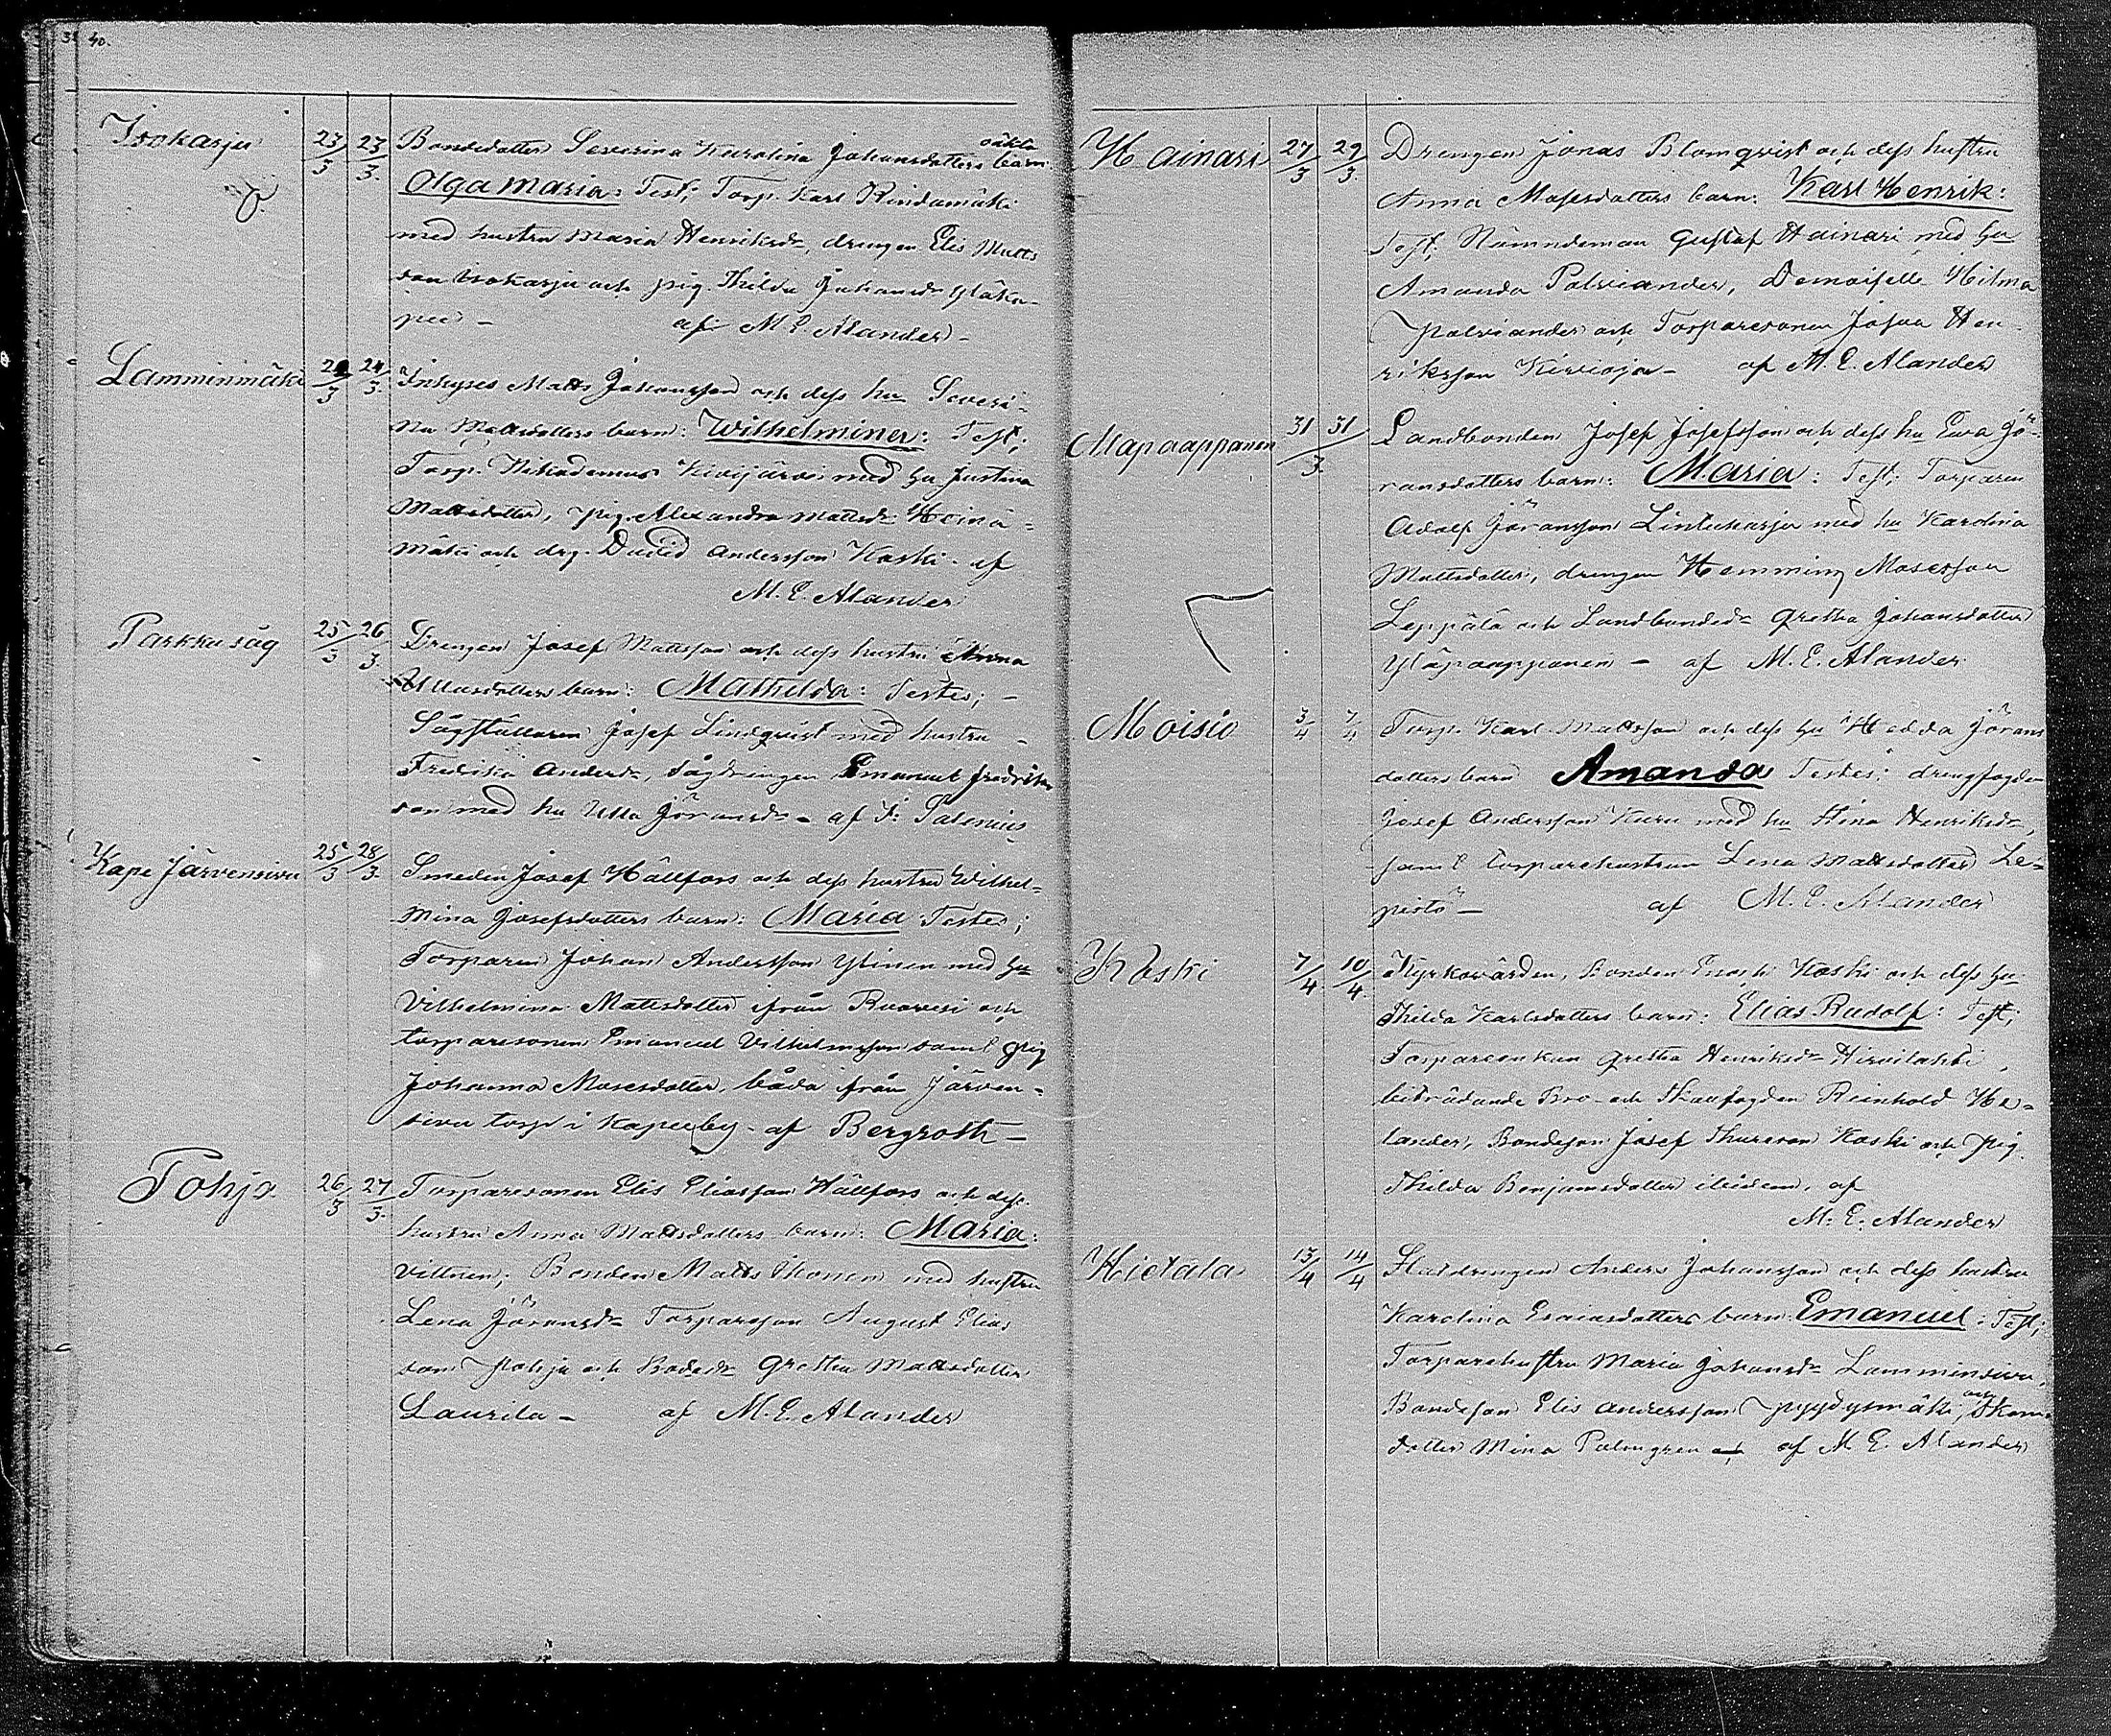 40.
Isokarju 23/3 23/3. Bondedotter Severina Karolina Johansdotters oäkta barn
Olga Maria: Test; Torp. Karl Rindamäki
med hustru Maria Henriksdr, drengen Elis Matts
son Isokarju och pig. Thilda Johansdr Yläka-
pee - af M. E. Alander -
Lamminmäki 24/3. Inhyses Matts Johansson och dess hu Severi-
na Mattsdotters barn: Wilhelmina: Test;
Torp. Nikodemus Kivijärvi med hu Justina
Mattsdotter, pig. Alexandra Mattsdr Heinä-
mäki och drg. David Andersson Koski - af
M. E. Alander
Parkkusåg 25/3 26/3. Drengen Josef Mattsson och dess hustru Anna
Ullasdotters barn: Mathilda: Testes; -
Sågställaren Josef Lindqvist med hustru -
Fredrika Andersdr, sågdrengen Emanuel Fredriks
son med hu Ulla Göransdr - af F. Salenius
Kape Järvensivu 25/3 28/3. Smeden Josef Hällfors och dess hustru Wilhel-
mina Josefsdotters barn: Maria Testes;
Torparen Johan Andersson Ylinen med hu
Vilhelmina Mattsdotter ifrån Ruovesi och
torparesonen Emanuel Vilhelmsson samt pig
Johanna Mosesdotter, båda ifrån Järven-
sivu torp i Kapeeby - af Bergroth -
Pohja 26/3 27/3. Torparesonen Elis Eliasson Hällfors och dess
hustru Anna Mattsdotters barn: Maria:
Vittnen; Bonden Matts Ikonen med hustru
Lena Göransdr Torpareson August Elias
son Pohja och Bodsdr Gretha Mattsdotter
Laurila - af M. E. Alander
Hainari 27/3 29/3. Drengen Jonas Blomqvist och dess hustru
Anna Mosesdotters barn: Karl Henrik:
Test. Nämndeman Gustaf Hainari med hu
Amanda Palviander, Demoiselle Hilma
Palviander och Torparesonen Josua Hen-
riksson Kivioja - af M. E. Alander
Alapaappanen 31 31/3. Landbonden Josef Josefsson och dess hu Eva Gö-
ransdotters barn: Maria: Test; Torparen
Adolf Göransson Lintuharju med hu Karolina
Mattsdotter, drengen Hemming Mosesson
Leppälä och Landbondedr Gretha Johansdotter
Yläpaappanen - af M. E. Alander
Moisio 3/4 7/4 Torp. Karl Mattsson och dess hu Hedda Görans
dotters barn Amanda Testes: drengfogden
Josef Andersson Kuru med hu Stina Henriksdr,
samt torparehustrun Lena Mattsdotter Le-
pistö - af M. E. Alander
Koski 7/4. 10/4. Kyrkovärden, bonden Enoch Koski och dess hu
Thilda Karlsdotters barn: Elias Rudolf: Test;
Torpareenkan Gretha Henriksdr Hirvilahti,
biträdande Bro- och Skallfogden Reinhold He-
lander, Bondeson Josef Thureson Koski och pig.
Thilda Benjamsdotter ibidem, af
M. E. Alander
Hietala 13/4 14/4 Statdrengen Anders Johansson och dess hustru
Karolina Esaiasdotters barn: Emanuel: Test;
Torparehustru Maria Johansdr Lamminsivu,
Bondeson Elis Andersson Pyydysmäki, och Skom.
dotter Mina Palmgren af M. E. Alander